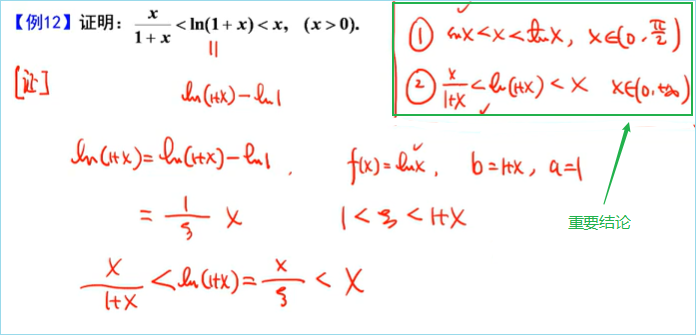 【例12】证明： x/(1+x) < ln(1+x) < x, (x>0).
||
[证] ln(1+x) - ln1
ln(1+x) = ln(1+x) - ln1, f(x) = lnx, b = 1+x, a = 1
= 1/ξ x 1 < ξ < 1+x
x/(1+x) < ln(1+x) = x/ξ < x
① sinx < x < tanx, x∈(0, π/2)
② x/(1+x) < ln(1+x) < x x∈(0, +∞)
重要结论